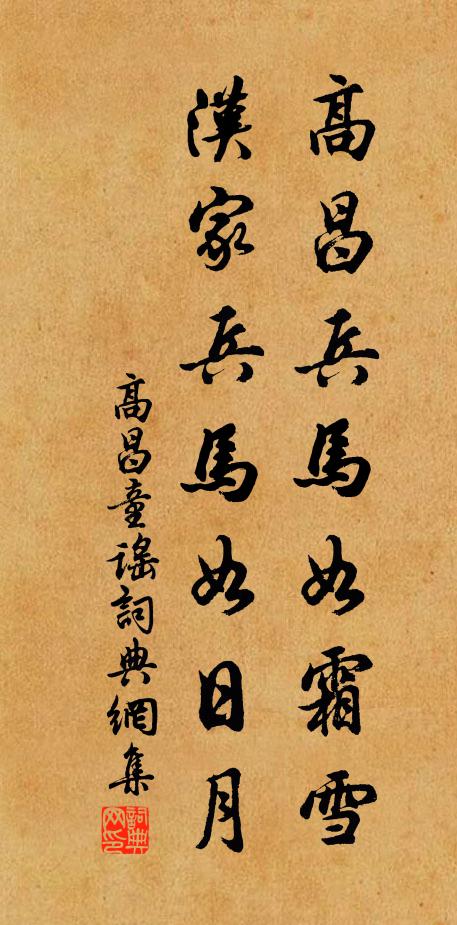 高昌兵馬如霜雪
漢家兵馬如日月
高昌童謠詞典網集
詞典网印